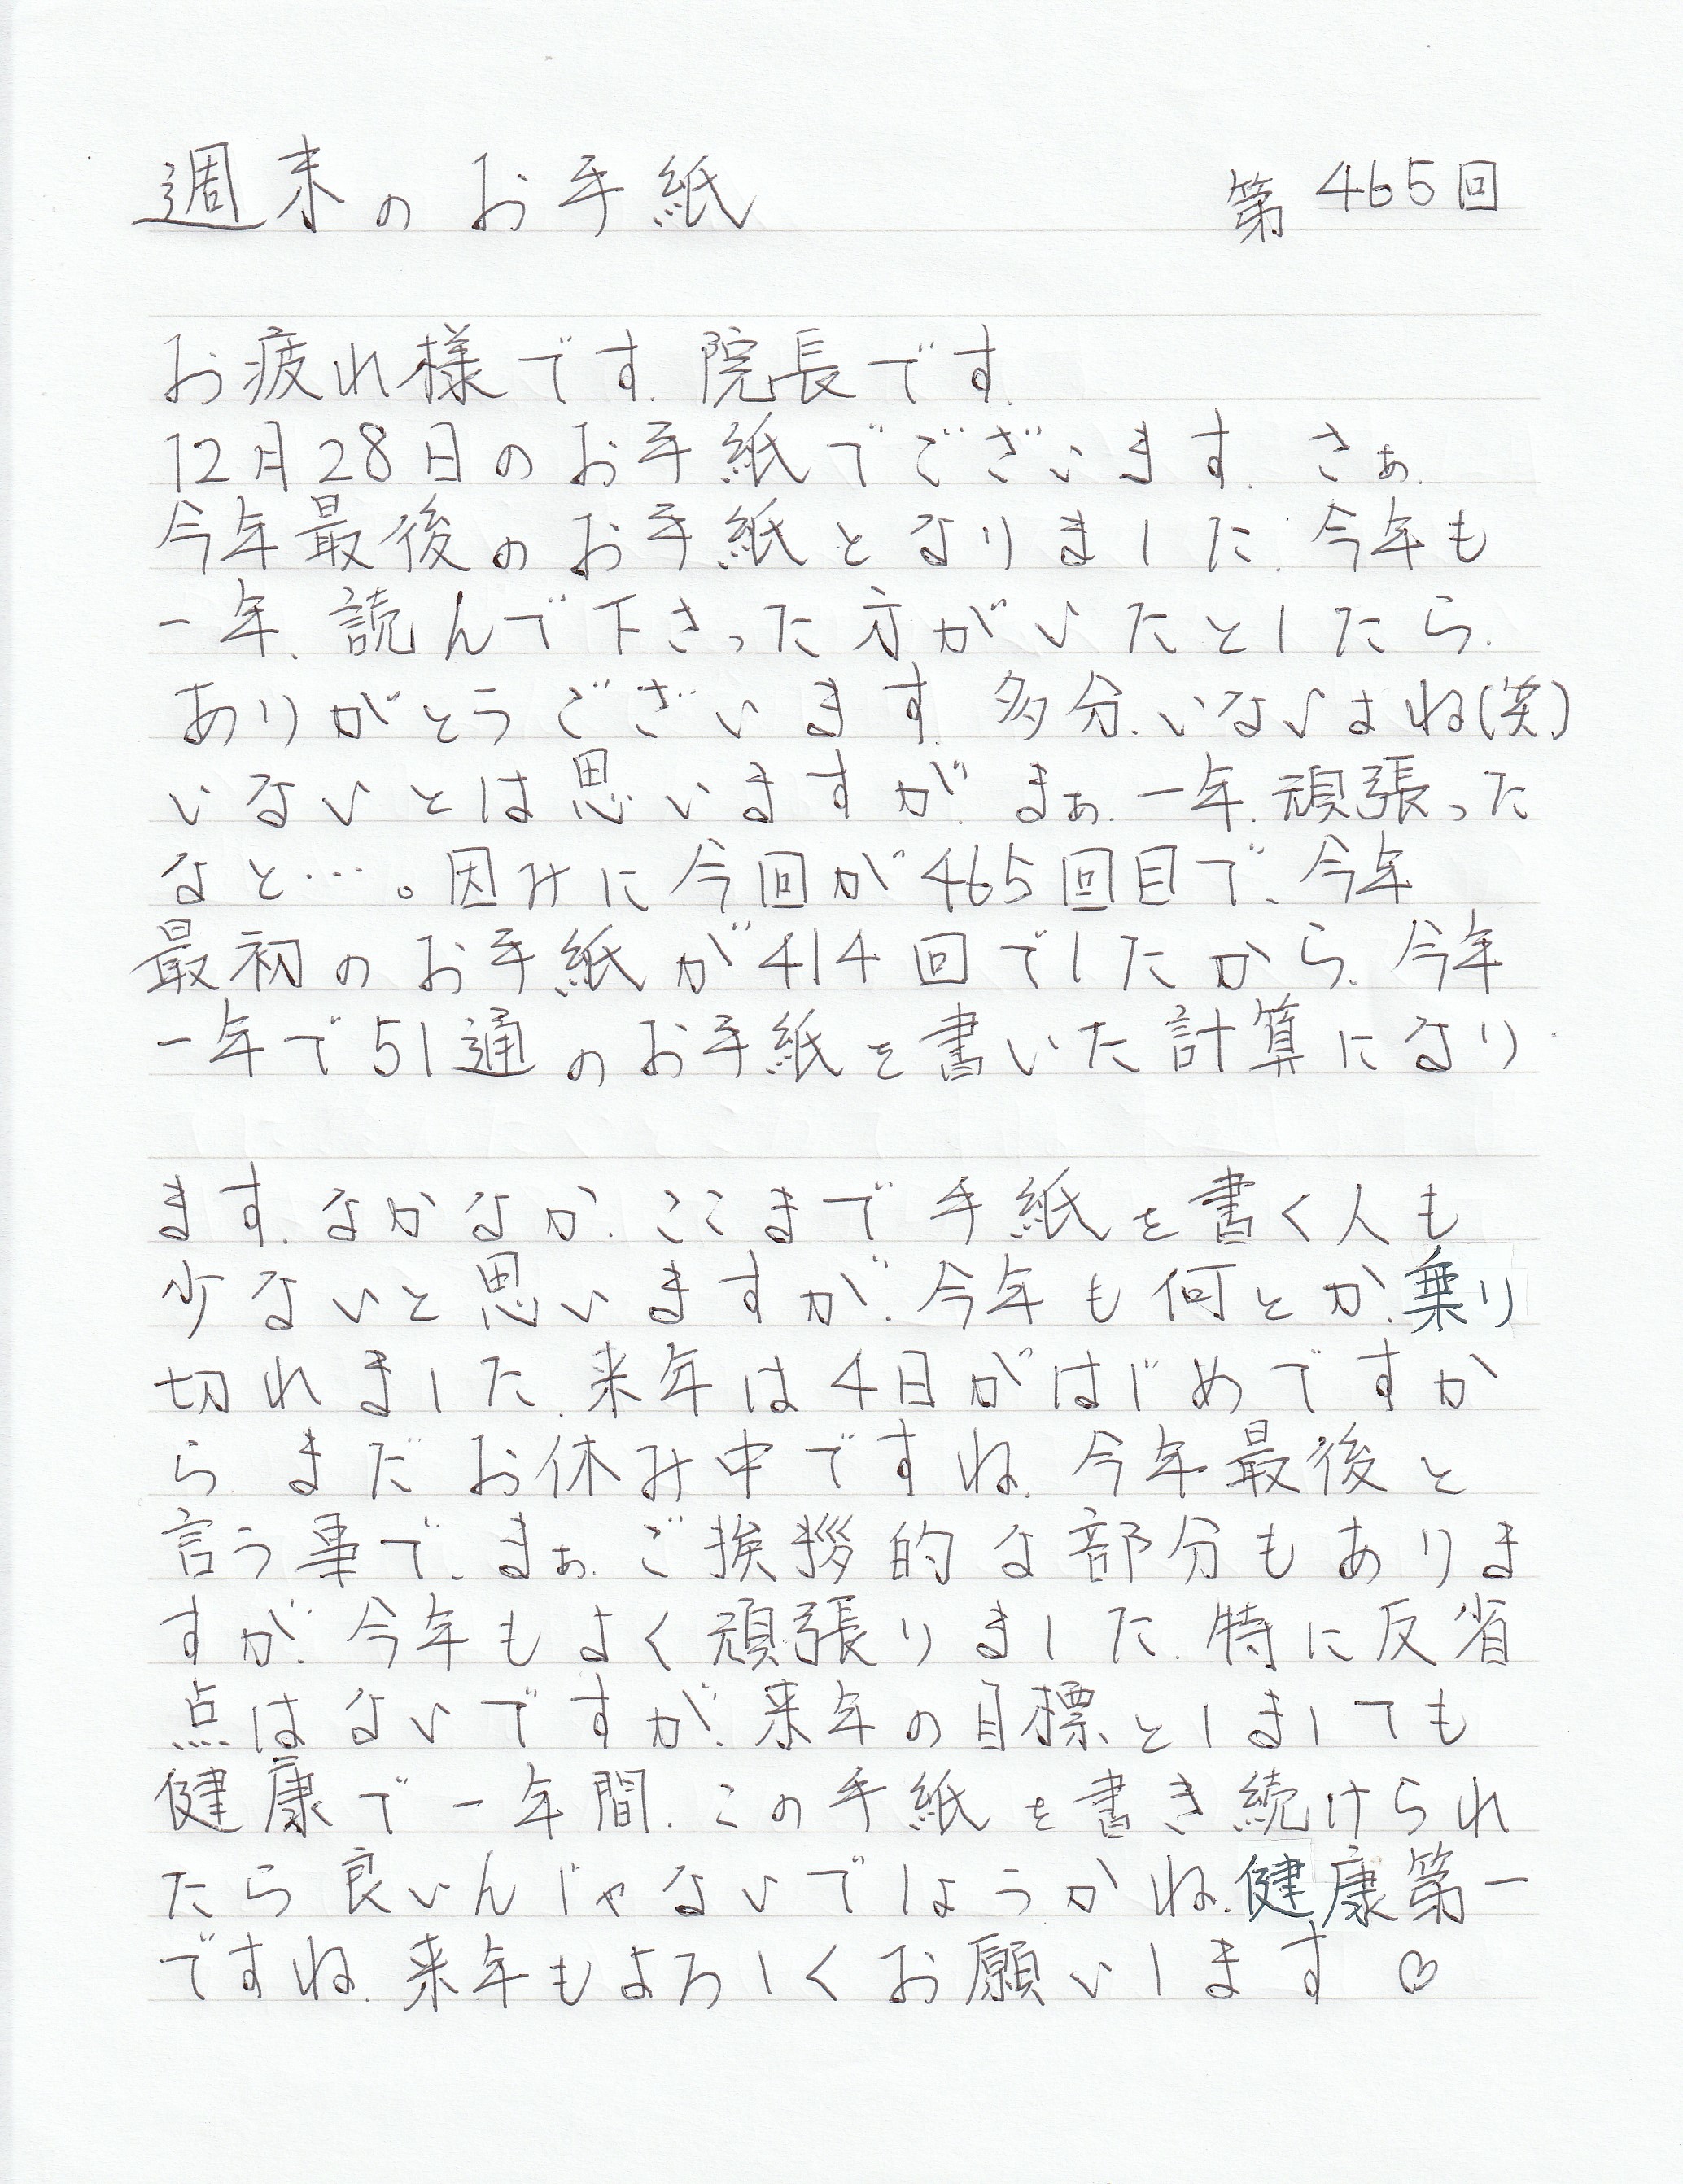 週末のお手紙 第465回
お疲れ様です.院長です.
12月28日のお手紙でございます.さぁ.
今年最後のお手紙となりました.今年も
一年、読んで下さった方がいたとしたら.
ありがとうございます.多分.いないよね(笑)
いないとは思いますが.まぁ.一年.頑張った
なと…。因みに今回が465回目で、今年
最初のお手紙が414回でしたから.今年
一年で51通のお手紙を書いた計算になり
ます.なかなか.ここまで手紙を書く人も
少ないと思いますが.今年も何とか.乗り
切れました.来年は4日がはじめですか
ら.まだお休み中ですね.今年最後と
言う事で、まぁ.ご挨拶的な部分もありま
すが.今年もよく頑張りました.特に反省
点はないですが.来年の目標としましても
健康で一年間.この手紙を書き続けられ
たら良いんじゃないでしょうかね.健康第一
ですね.来年もよろしくお願いします♡